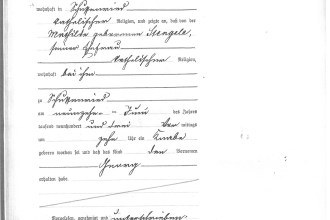 wohnhaft in Schussenried
katholischer Religion, und zeigte an, daß von der
Mathilde geborenen Stengele,
seiner Ehefrau
katholischer Religion,
wohnhaft bei ihm
zu Schussenried
am neunzehn - Juni des Jahres
tausend neunhundert und drei Vor mittags
um zehn Uhr ein Knabe
geboren worden sei und daß das Kind den Vornamen
Georg
erhalten habe
Vorgelesen, genehmigt und unterschrieben